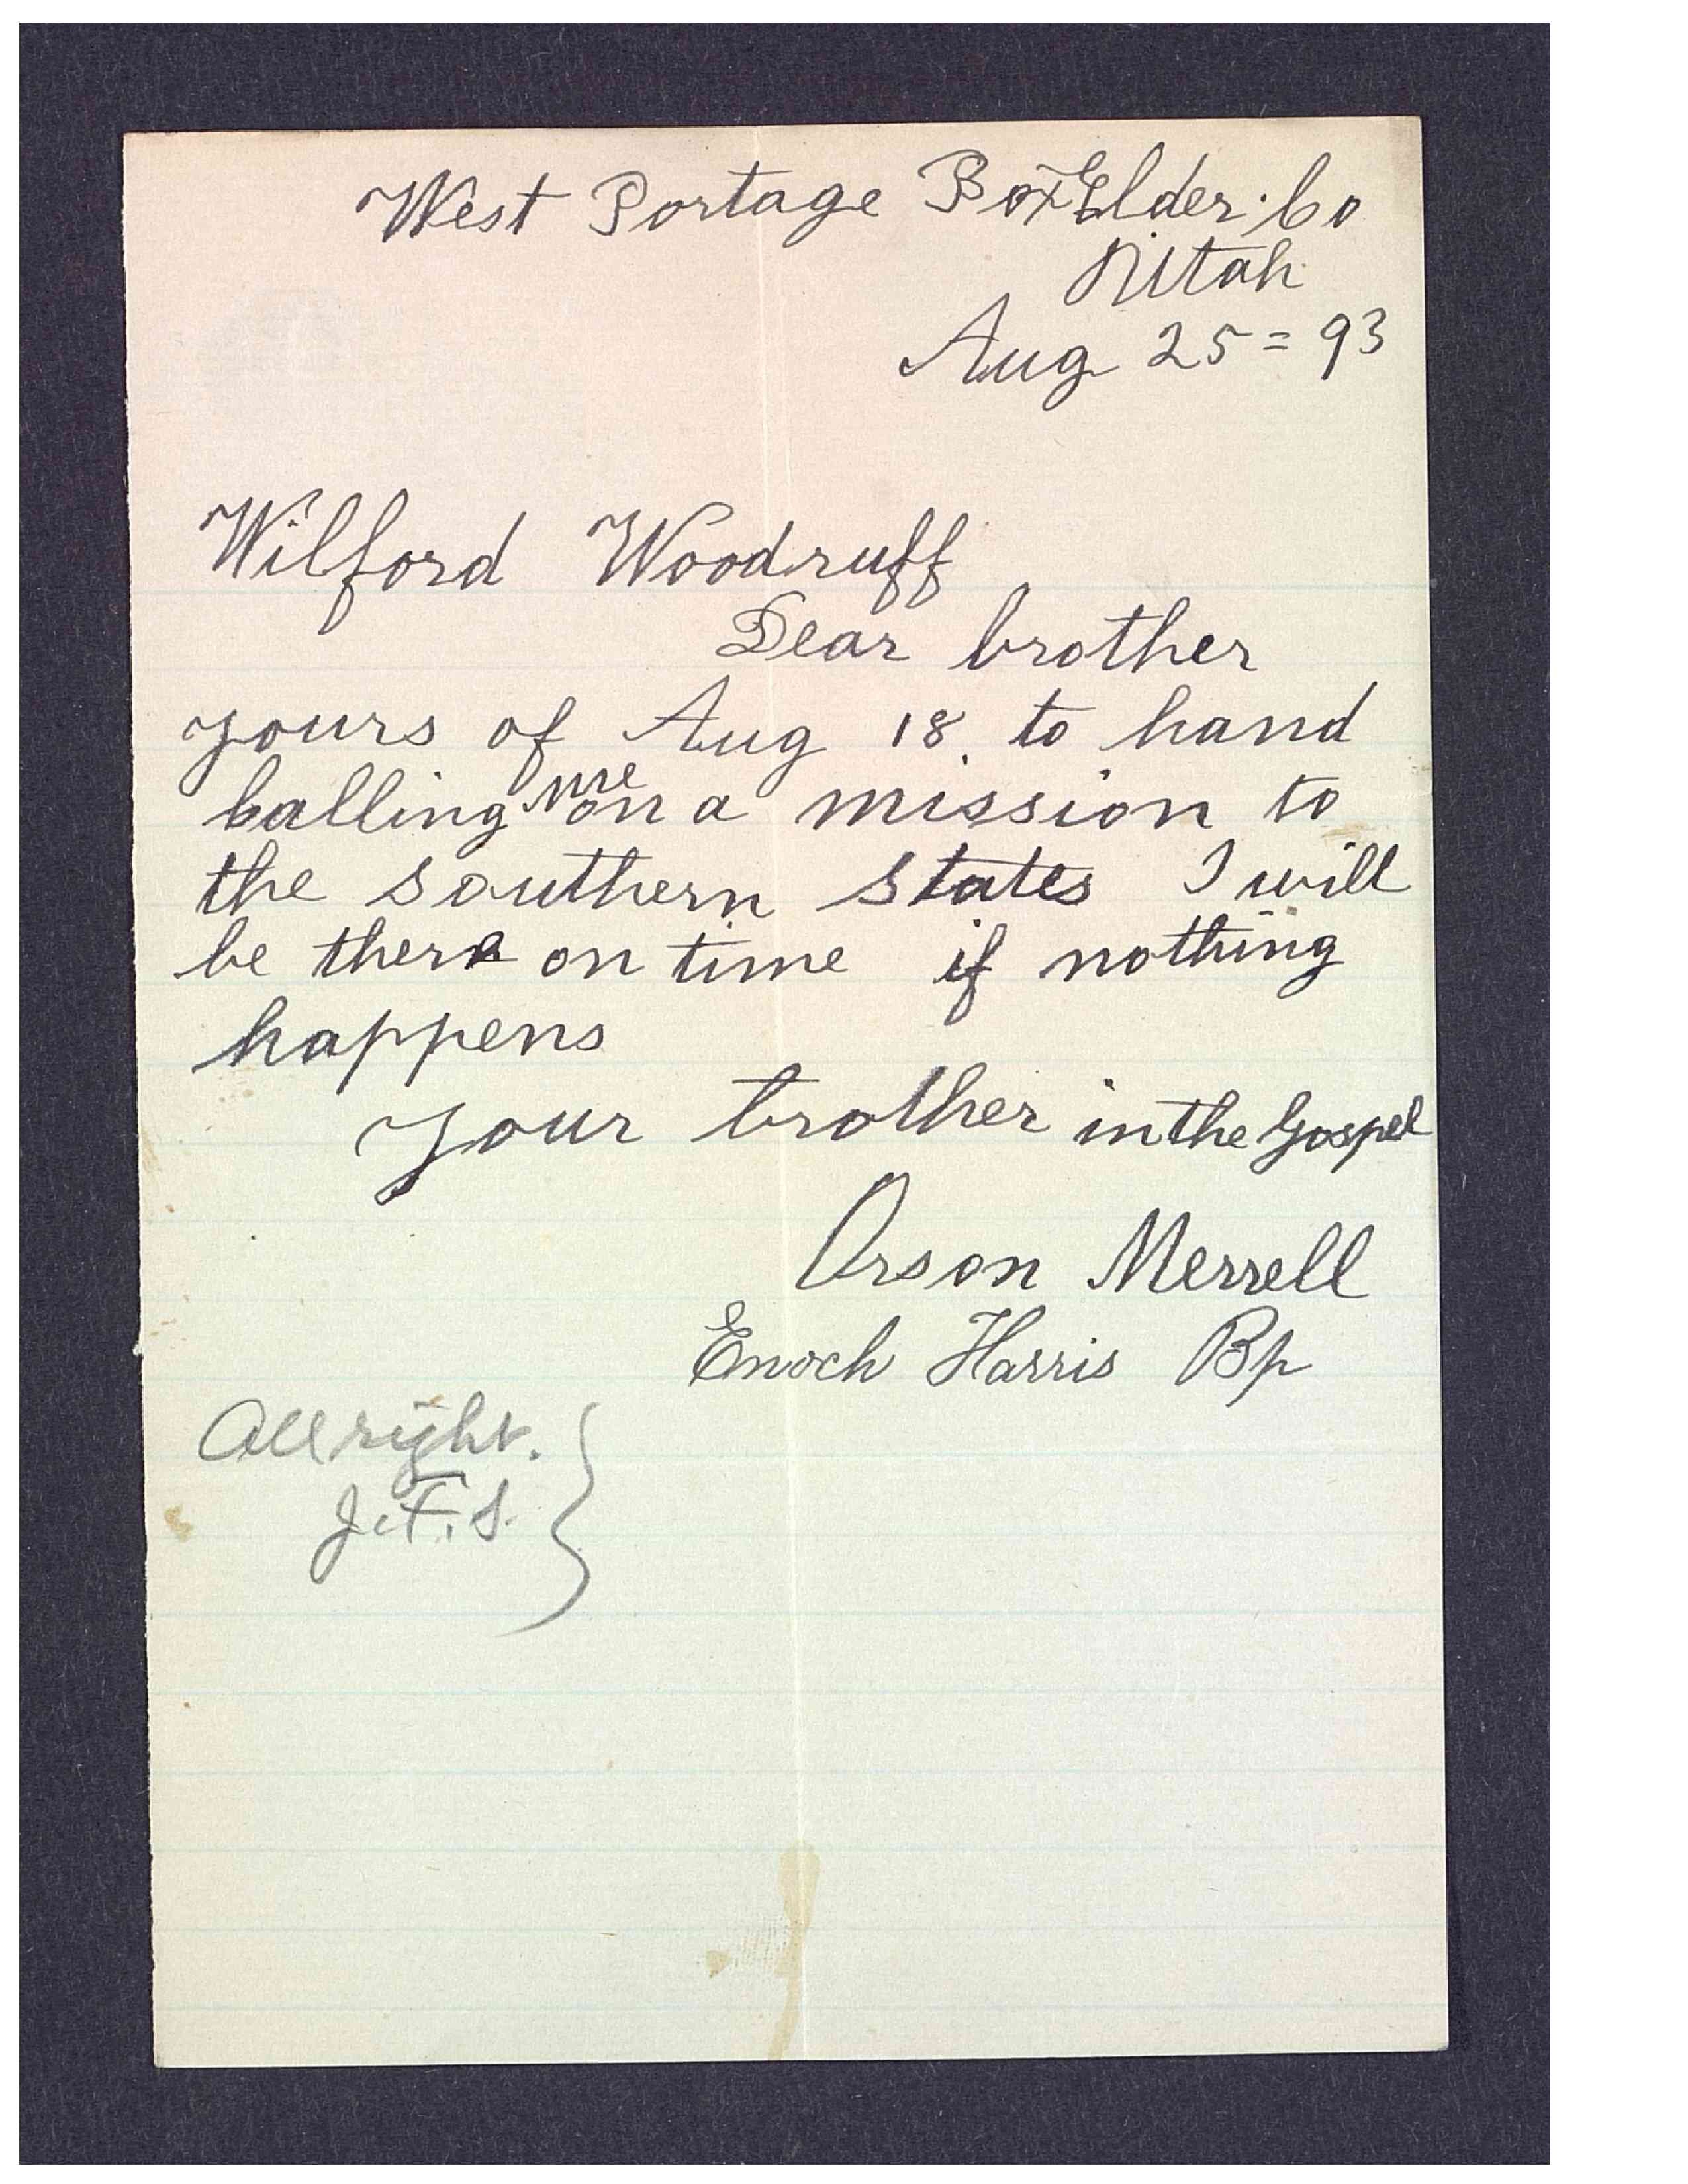 West Portage Box Elder Co
Utah
Aug 25 = 93
Wilford Woodruff
Dear brother
yours of Aug 18. to hand
Calling me on a mission to
the southern states I will
be there on time if nothing
happens
your brother in the Gospel
Orson Merrell
Enoch Harris Bp
All right.
J.F.S.